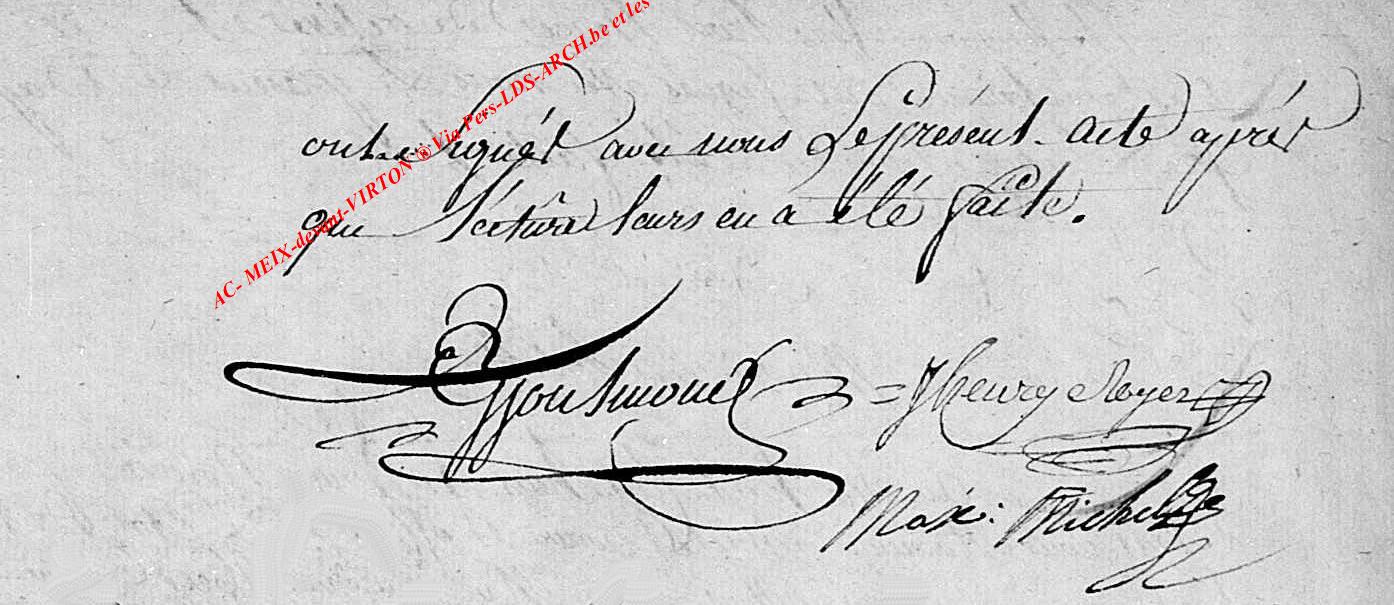 AC- MEIX-devant-VIRTON ® Via Pers-LDS-ARCH.be et les
ont signés avec nous Le présent acte après
que lécture leurs en a été faite.
= JHenry Royer
Max: Michel